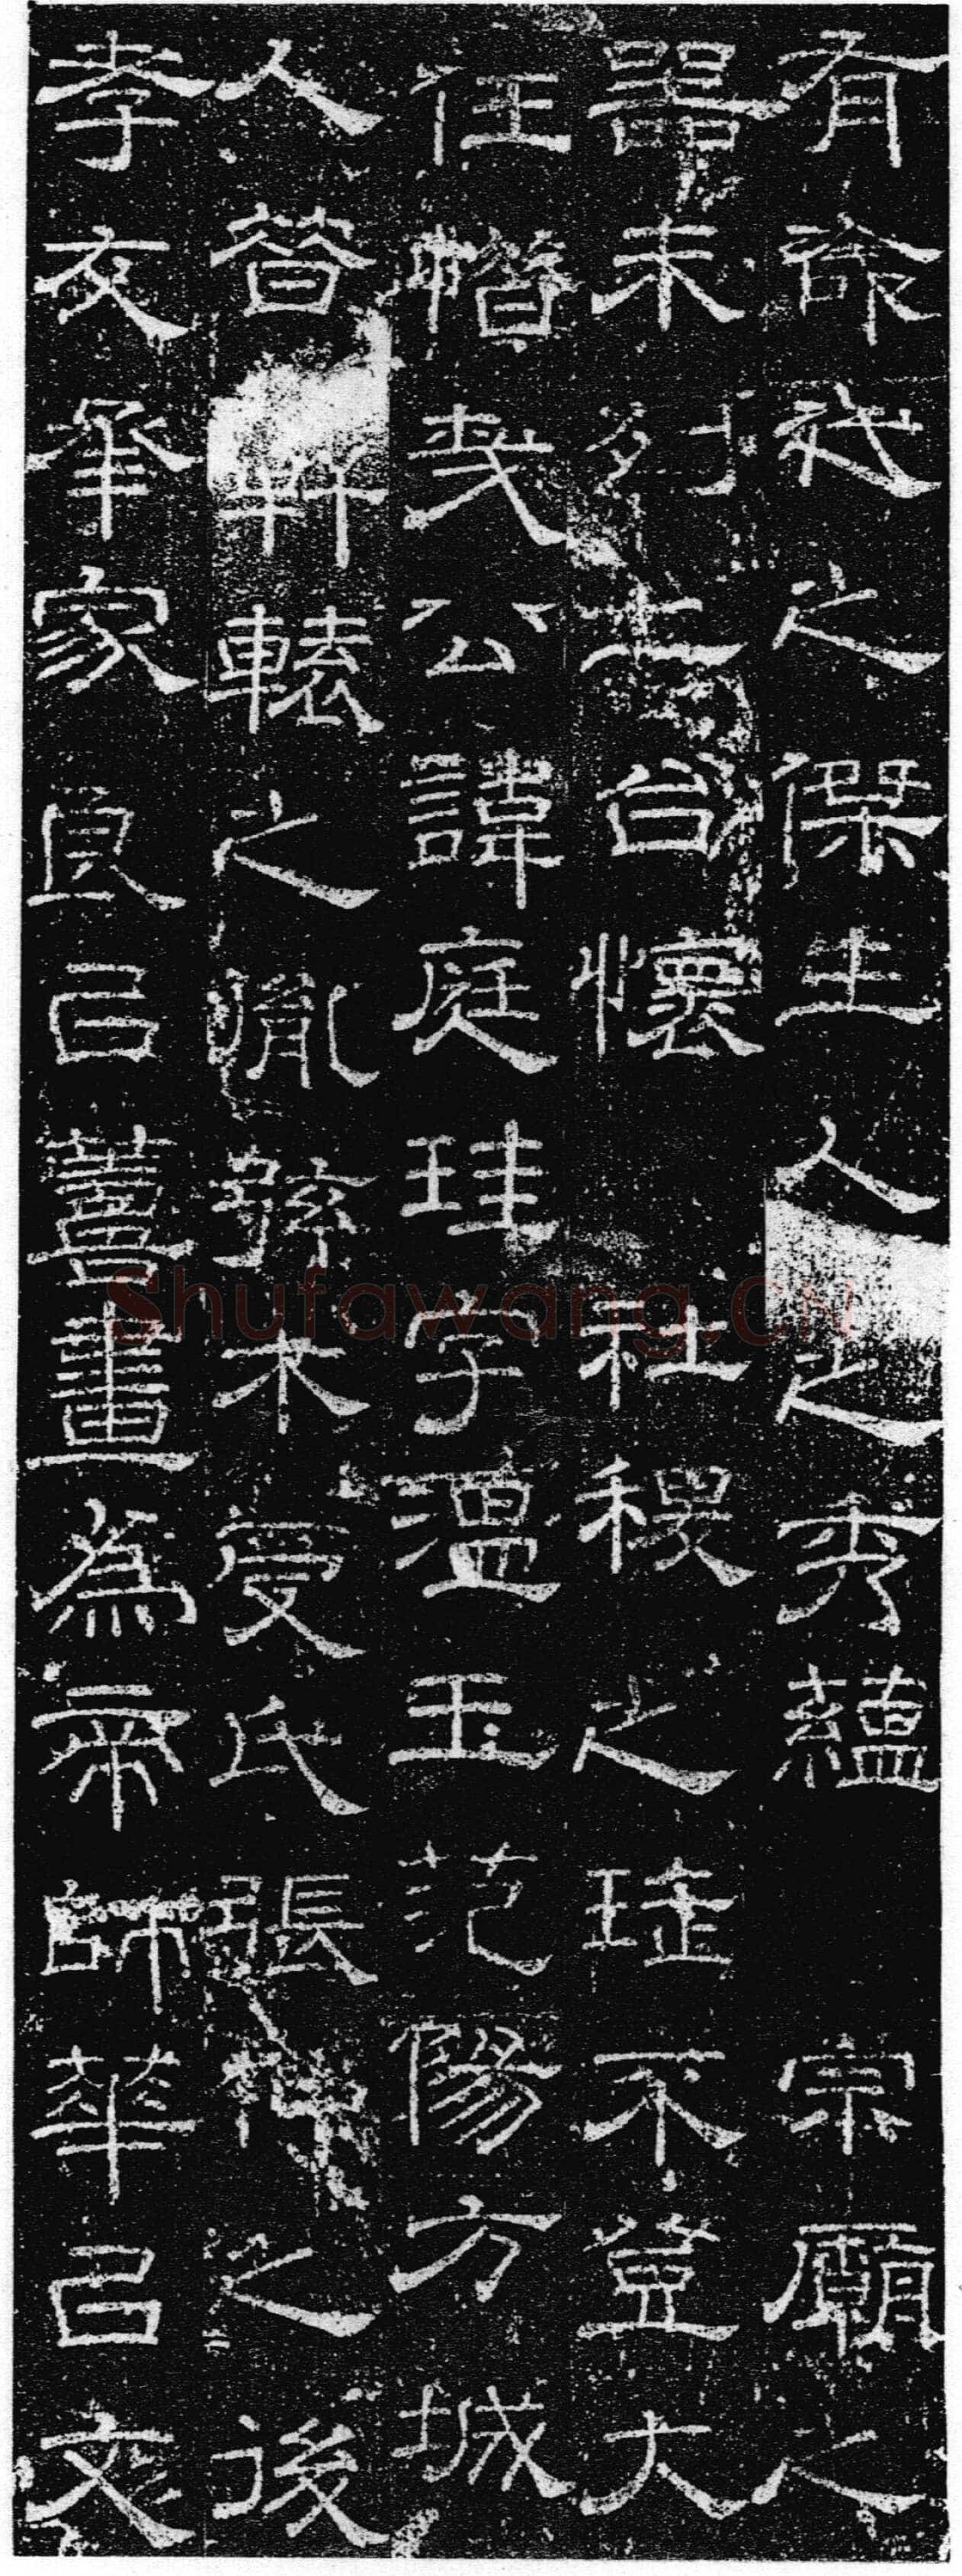 有命代之傑生人之秀蘊 宗廟之
器未列上台懷 社稷之珪不登大
任惜哉公諱庭珪字溫玉范陽方城
人昔軒轅之胤弦木受氏張仲之後
孝友承家良㠯籌畫為帝師華㠯文
Shufawang.CN